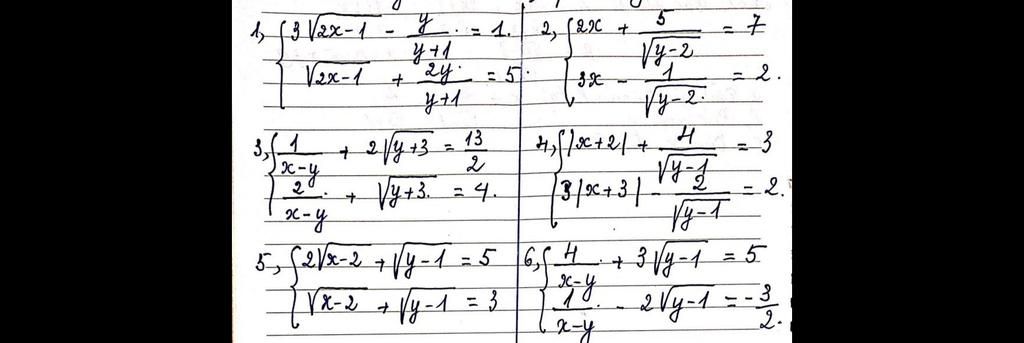 1, { 3√(2x-1) - y/(y+1) = 1.
√(2x-1) + 2y/(y+1) = 5.
2, { 2x + 5/√(y-2) = 7
3x - 1/√(y-2) = 2.
3, { 1/(x-y) + 2√(y+3) = 13/2
2/(x-y) + √(y+3) = 4.
4, { |x+2| + 4/√(y-1) = 3
3|x+3| - 2/√(y-1) = 2.
5, { 2√(x-2) + √(y-1) = 5
√(x-2) + √(y-1) = 3
6, { 4/(x-y) + 3√(y-1) = 5
1/(x-y) - 2√(y-1) = -3/2.